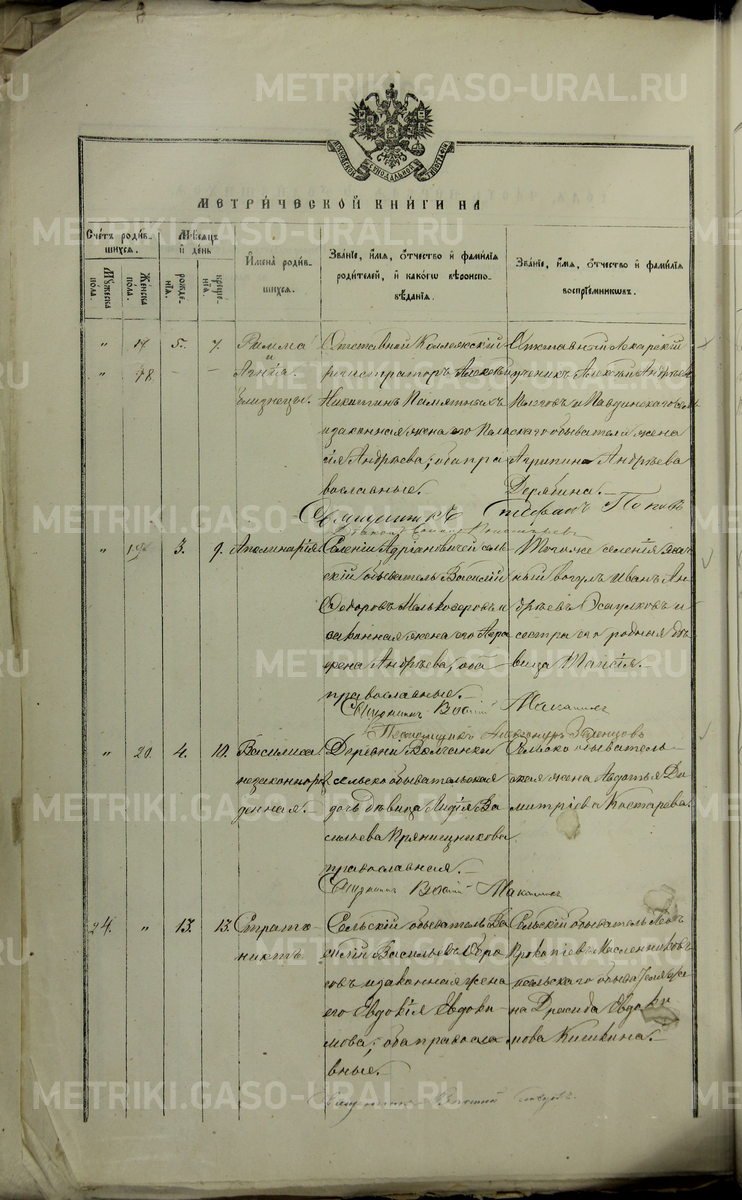 METRIKI.GASO-URAL.RU
МЕТРИЧЕСКОЙ КНИГИ НА
Счетъ родив-
шихся.
Мѣсяцъ
и день
Имена родив-
шихся.
Званіе, имя, отчество и фамилія
родителей, и какого вѣроиспо-
вѣданія.
Званіе, имя, отчество и фамилія
воспріемниковъ.
Мужеска
пола.
Женска
пола.
рожде-
нія.
креще-
нія.
„ 17 5. 7. Римма
и
„ 18 — — Агнія.
близнецы.
Отставной Коллежскій
регистраторъ Алексѣй
Никитинъ Памятныхъ
и законная жена его Пела
гія Андрѣева; оба пра
вославные.
Отставной Лекарскій
ученикъ Алексѣй Андрѣевъ
Поповъ и Павдинскаго
скаго обывателя жена
Агрипина Андрѣева
Дерябина.
„ 19 3. 9. Аполинарія.
Селенія Адріановичей сель
скій обыватель Василій
Ѳедоровъ Мелькозеровъ и
законная жена его Агра
фена Андрѣева; оба
православные.
Тогоже селенія
ный вогулъ Иванъ Ан
дрѣевъ Осаулковъ и
сестра его родная дѣ
вица Таисія.
„ 20. 4. 10. Василиса
незаконорож
денная.
Деревни Волчанки
сельско обывательская
дочь дѣвица Лидія Ва
сильева Прянишникова
православная.
Сельско обыватель
ская жена Авдотья Ди
митріева Костарева.
24. „ 13. 13. Стратo
никъ
Сельскій обыватель Ва
силій Васильевъ
и законная жена
его Евдокія Евдоки
мова; оба правосла
вные.
Сельскій обыватель
Прокопіевъ Масленниковъ
и сельскаго обывателя же
на Дросида Евдоки
мова Кишкина.